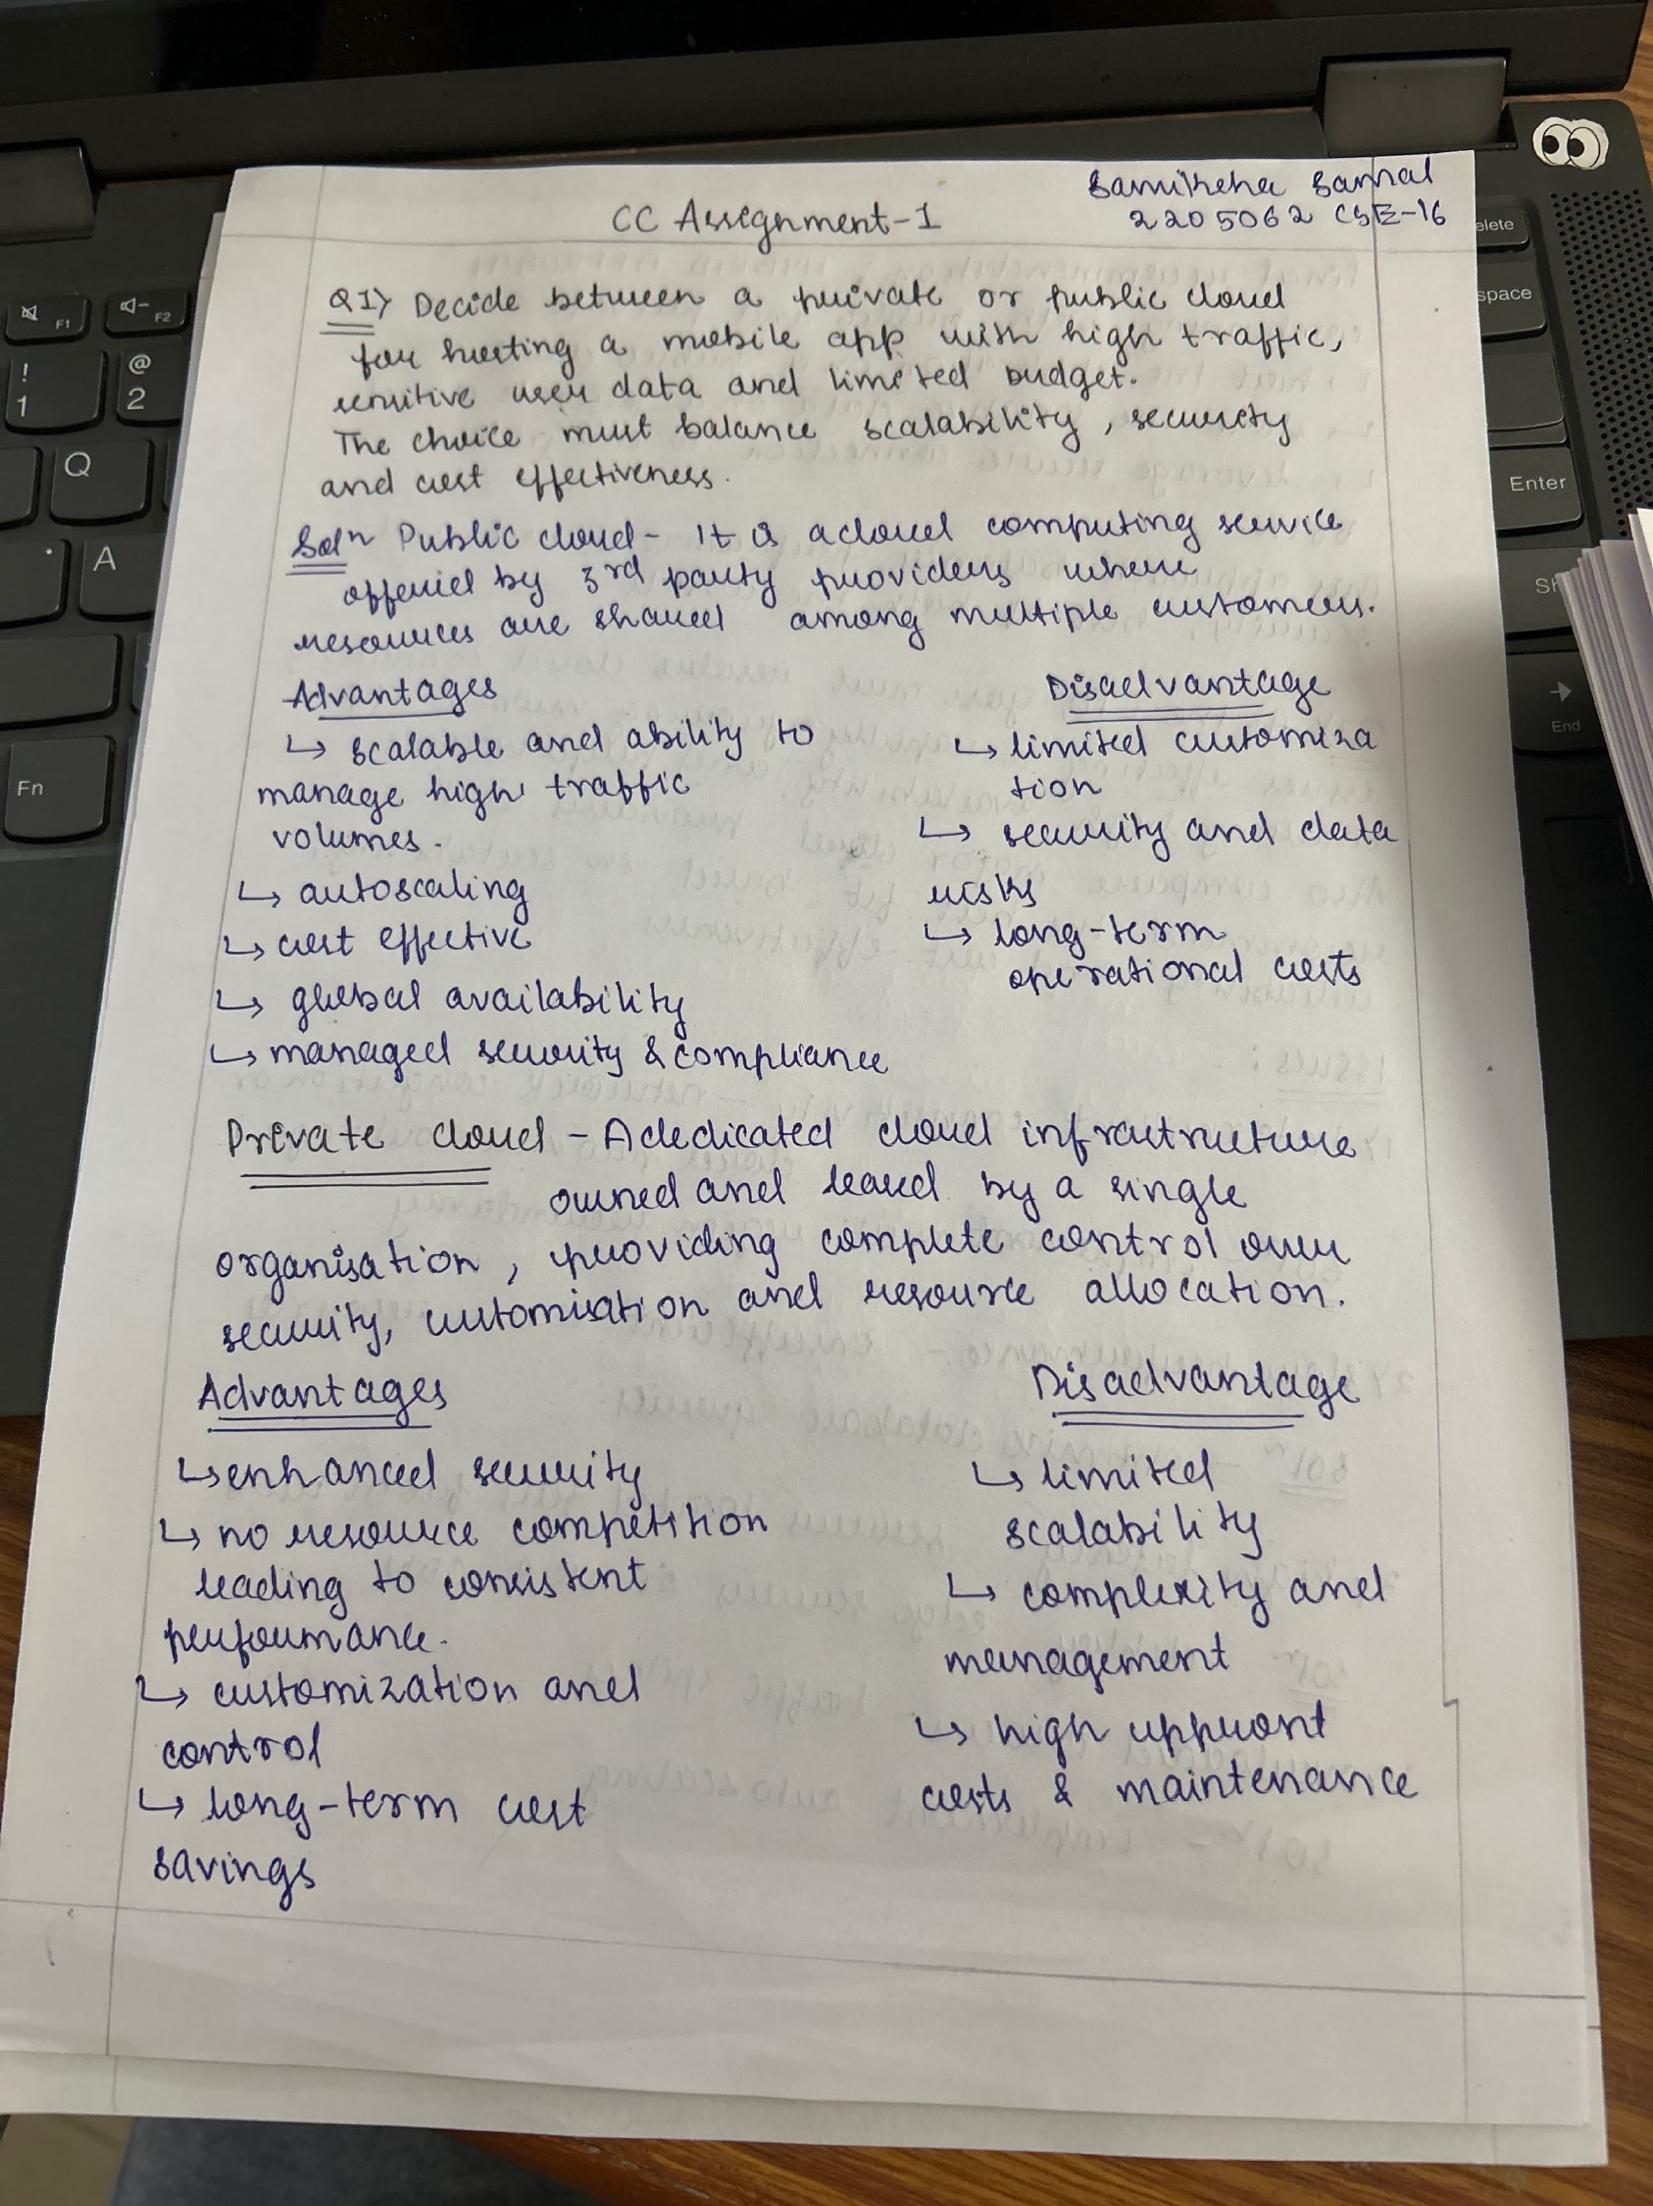 CC Assignment-1
Samiksha Samal
2205062 CSE-16
Q1) Decide between a private or public cloud
for hosting a mobile app with high traffic,
sensitive user data and limited budget.
The choice must balance scalability, security
and cost effectiveness.
Solⁿ Public cloud - It is a cloud computing service
offered by 3rd party providers where
resources are shared among multiple customers.
Advantages
↳ scalable and ability to
manage high traffic
volumes.
↳ autoscaling
↳ cost effective
↳ global availability
↳ managed security & compliance
Disadvantage
↳ limited customiza
tion
↳ security and data
risks
↳ long-term
operational costs
Private cloud - A dedicated cloud infrastructure
owned and leased by a single
organisation, providing complete control over
security, customisation and resource allocation.
Advantages
↳ enhanced security
↳ no resource competition
leading to consistent
performance.
↳ customization and
control
↳ long-term cost
savings
Disadvantage
↳ limited
scalability
↳ complexity and
management
↳ high uppront
costs & maintenance
F1
F2
!
1
@
2
Q
A
Fn
elete
space
Enter
Sh
→
End